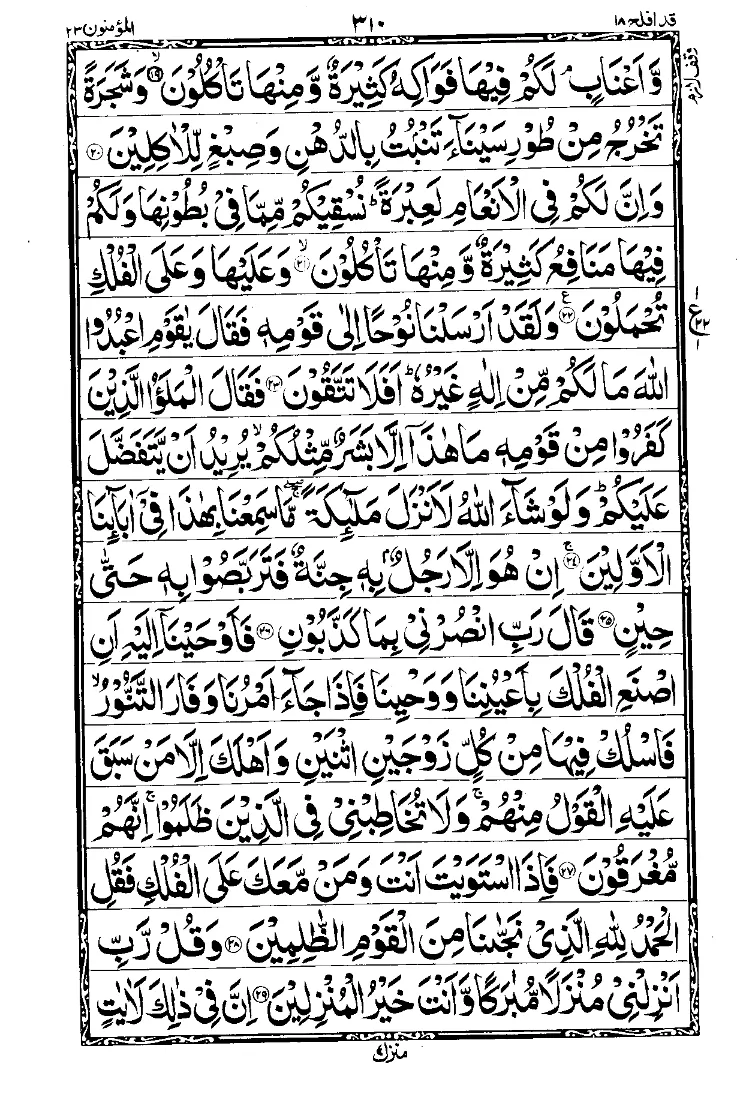 قد افلح ١٨
٣١٠
المؤمنون ٢٣
وَّاَعْنَابٍ ۘ لَكُمْ فِيْهَا فَوَاكِهُ كَثِيْرَةٌ وَّمِنْهَا تَاْكُلُوْنَ ۙ﴿١٩﴾ وَشَجَرَةً
تَخْرُجُ مِنْ طُوْرِ سَيْنَآءَ تَنْۢبُتُ بِالدُّهْنِ وَصِبْغٍ لِّلْاٰكِلِيْنَ ﴿٢٠﴾
وَاِنَّ لَكُمْ فِى الْاَنْعَامِ لَعِبْرَةً ؕ نُسْقِيْكُمْ مِّمَّا فِىْ بُطُوْنِهَا وَلَكُمْ
فِيْهَا مَنَافِعُ كَثِيْرَةٌ وَّمِنْهَا تَاْكُلُوْنَ ۙ﴿٢١﴾ وَعَلَيْهَا وَعَلَى الْفُلْكِ
تُحْمَلُوْنَ ﴿٢٢﴾ ع وَلَقَدْ اَرْسَلْنَا نُوْحًا اِلٰى قَوْمِهٖ فَقَالَ يٰقَوْمِ اعْبُدُوا
اللّٰهَ مَا لَكُمْ مِّنْ اِلٰهٍ غَيْرُهٗ ؕ اَفَلَا تَتَّقُوْنَ ﴿٢٣﴾ فَقَالَ الْمَلَؤُا الَّذِيْنَ
كَفَرُوْا مِنْ قَوْمِهٖ مَا هٰذَاۤ اِلَّا بَشَرٌ مِّثْلُكُمْ ۙ يُرِيْدُ اَنْ يَّتَفَضَّلَ
عَلَيْكُمْ ؕ وَلَوْ شَآءَ اللّٰهُ لَاَنْزَلَ مَلٰٓئِكَةً ۖۚ مَّا سَمِعْنَا بِهٰذَا فِىْۤ اٰبَآئِنَا
الْاَوَّلِيْنَ ۚ﴿٢٤﴾ اِنْ هُوَ اِلَّا رَجُلٌۢ بِهٖ جِنَّةٌ فَتَرَبَّصُوْا بِهٖ حَتّٰى
حِيْنٍ ﴿٢٥﴾ قَالَ رَبِّ انْصُرْنِىْ بِمَا كَذَّبُوْنِ ﴿٢٦﴾ فَاَوْحَيْنَاۤ اِلَيْهِ اَنِ
اصْنَعِ الْفُلْكَ بِاَعْيُنِنَا وَوَحْيِنَا فَاِذَا جَآءَ اَمْرُنَا وَفَارَ التَّنُّوْرُ ۙ
فَاسْلُكْ فِيْهَا مِنْ كُلٍّ زَوْجَيْنِ اثْنَيْنِ وَاَهْلَكَ اِلَّا مَنْ سَبَقَ
عَلَيْهِ الْقَوْلُ مِنْهُمْ ۚ وَلَا تُخَاطِبْنِىْ فِى الَّذِيْنَ ظَلَمُوْا ۚ اِنَّهُمْ
مُّغْرَقُوْنَ ﴿٢٧﴾ فَاِذَا اسْتَوَيْتَ اَنْتَ وَمَنْ مَّعَكَ عَلَى الْفُلْكِ فَقُلِ
الْحَمْدُ لِلّٰهِ الَّذِىْ نَجّٰىنَا مِنَ الْقَوْمِ الظّٰلِمِيْنَ ﴿٢٨﴾ وَقُلْ رَّبِّ
اَنْزِلْنِىْ مُنْزَلًا مُّبٰرَكًا وَّاَنْتَ خَيْرُ الْمُنْزِلِيْنَ ﴿٢٩﴾ اِنَّ فِىْ ذٰلِكَ لَاٰيٰتٍ
وقف لازم
ع ٢٢
منزل ٤